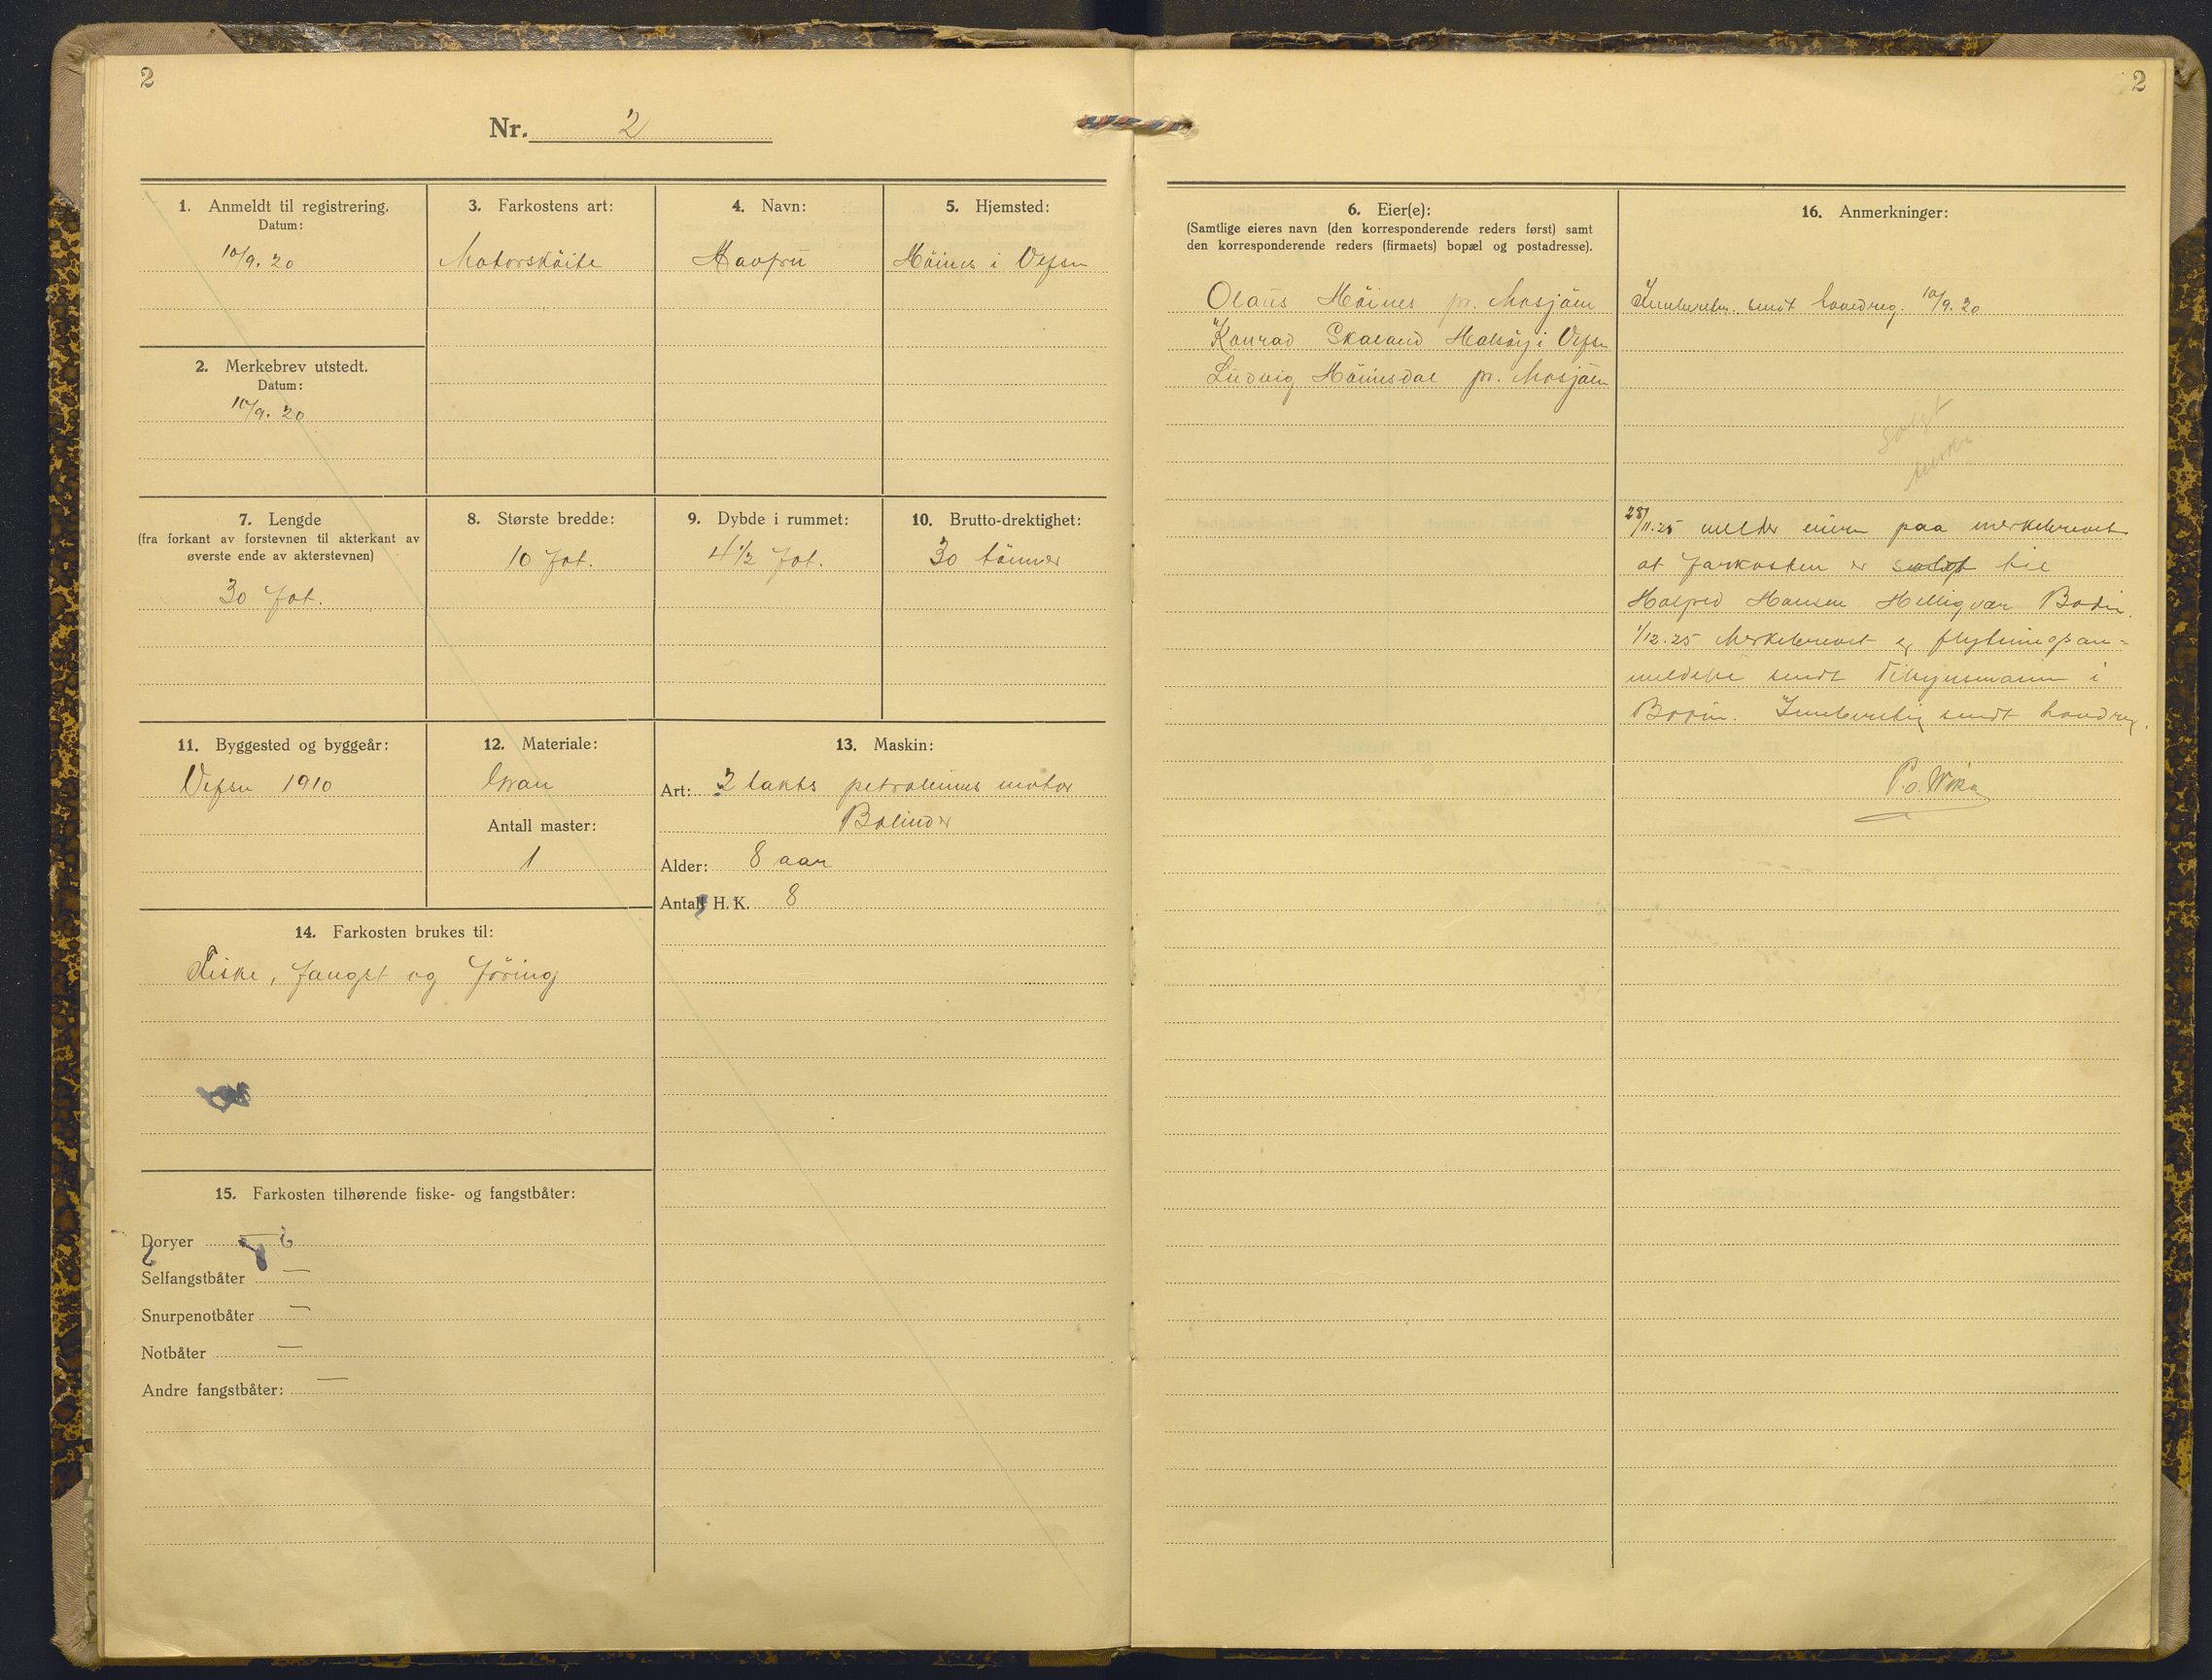 2
Nr. 2
1. Anmeldt til registrering.
Datum:
10/9. 20
2. Merkebrev utstedt.
Datum:
10/9. 20
3. Farkostens art:
Motorsköite
4. Navn:
Havfru
5. Hjemsted:
Höines i Vefsn
7. Lengde
(fra forkant av forstevnen til akterkant av
øverste ende av akterstevnen)
30 fot.
8. Største bredde:
10 fot.
9. Dybde i rummet:
4 1/2 fot.
10. Brutto-drektighet:
30 tönner
11. Byggested og byggeår:
Vefsn 1910
12. Materiale:
Gran
Antall master:
1
13. Maskin:
Art: 2 takts petroleums motor
Bolinder
Alder: 8 aar
Antall H. K. 8
14. Farkosten brukes til:
Fiske, fangst og föring
15. Farkosten tilhørende fiske- og fangstbåter:
Doryer —
Selfangstbåter —
Snurpenotbåter —
Notbåter —
Andre fangstbåter: —
2
6. Eier(e):
(Samtlige eieres navn (den korresponderende reders først) samt
den korresponderende reders (firmaets) bopæl og postadresse).
Olaus Höines pr. Mosjöen
Konrad Skaland Halsöy i Vefsn
Ludvig Höinesdal pr. Mosjöen
16. Anmerkninger:
sendt hovedreg. 10/9. 20
Solgt
merke
28/11.25 melder eieren paa merkebrevet
at farkosten er solgt til
Halfred Hansen Helligvær Bodin.
1/12.25 Merkebrevet og flytningsan-
meldelse sendt Tilsynsmann i
Bodin. sendt hovedreg.
P. O. Wika